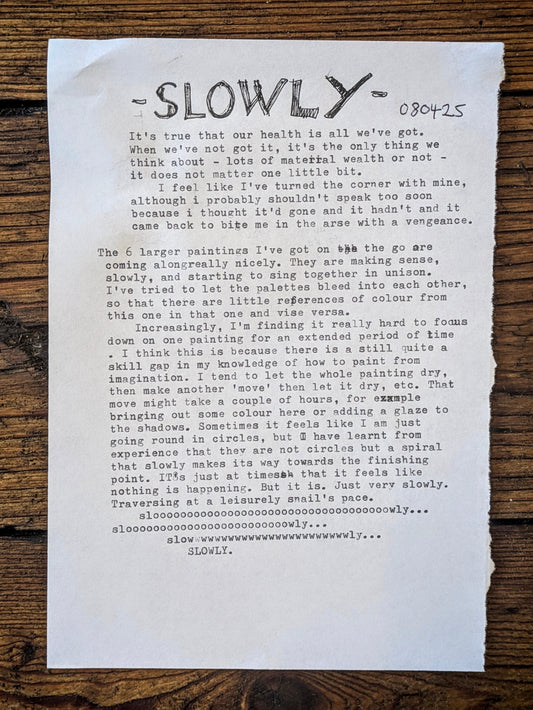 -SLOWLY-
080425
It's true that our health is all we've got.
When we've not got it, it's the only thing we
think about - lots of material wealth or not -
it does not matter one little bit.
I feel like I've turned the corner with mine,
although i probably shouldn't speak too soon
because i thought it'd gone and it hadn't and it
came back to bite me in the arse with a vengeance.
The 6 larger paintings I've got on the the go are
coming alongreally nicely. They are making sense,
slowly, and starting to sing together in unison.
I've tried to let the palettes bleed into each other,
so that there are little references of colour from
this one in that one and vise versa.
Increasingly, I'm finding it really hard to focus
down on one painting for an extended period of time
. I think this is because there is a still quite a
skill gap in my knowledge of how to paint from
imagination. I tend to let the whole painting dry,
then make another 'move' then let it dry, etc. That
move might take a couple of hours, for example
bringing out some colour here or adding a glaze to
the shadows. Sometimes it feels like I am just
going round in circles, but I have learnt from
experience that they are not circles but a spiral
that slowly makes its way towards the finishing
point. IT's just at times that it feels like
nothing is happening. But it is. Just very slowly.
Traversing at a leisurely snail's pace.
slooooooooooooooooooooooooooooooooooooowly...
slooooooooooooooooooooooooowly...
slowwwwwwwwwwwwwwwwwwwwwwwwwly...
SLOWLY.